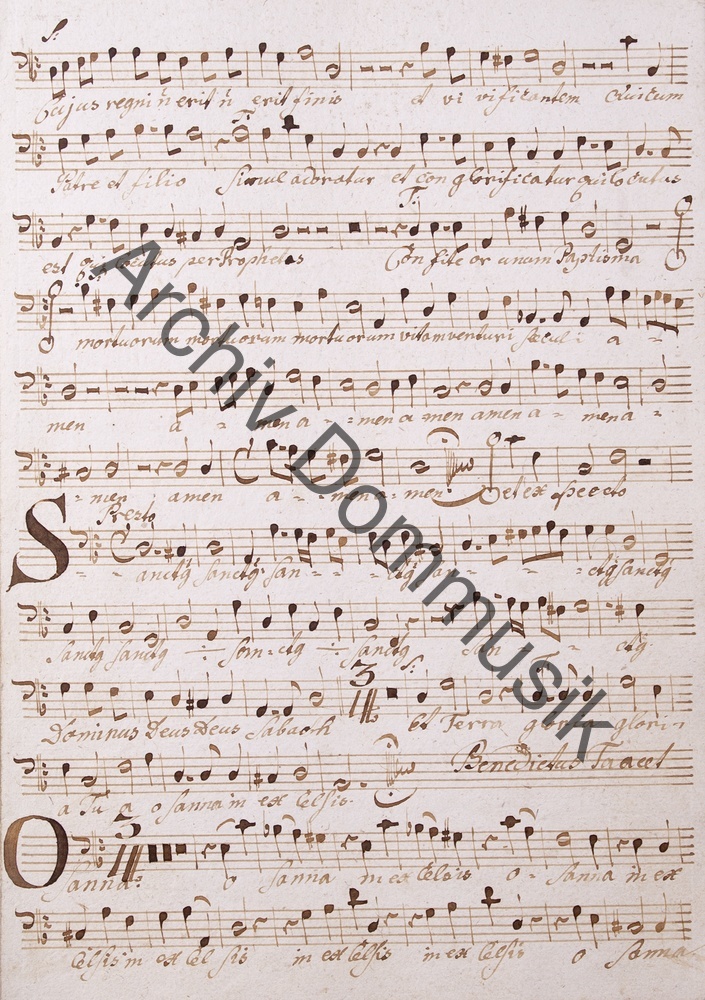 S:
Cujus regni ñ erit ñ erit finis et vi vificantem Qui cum
Patre et filio Simul adoratur et con glorificatur qui locutus
T:
est qui locutus per Prophetas Con fite or unum Baptisma
mortuorum mortuorum mortuorum vitam venturi sæculi a =
men a = men a = men a = men amen a = men a =
= men amen a = men a = men: et ex specto
Presto
Sanctq Sanctq San = = ctq San = = ctq Sanctq
Sanctq Sanctq ÷ San = ctq ÷ Sanctq San = ctq
3 S:
Dominus Deus Deus Sabaoth et Terra gloria glori =
a Tu a o sanna in ex celsis. Benedictus Taacet
3
Osanna: o Sanna in ex Celsis o = Sanna in ex
Celsis in ex Cel sis in ex Celsis in ex Celsis o Sanna
Archiv Dommusik